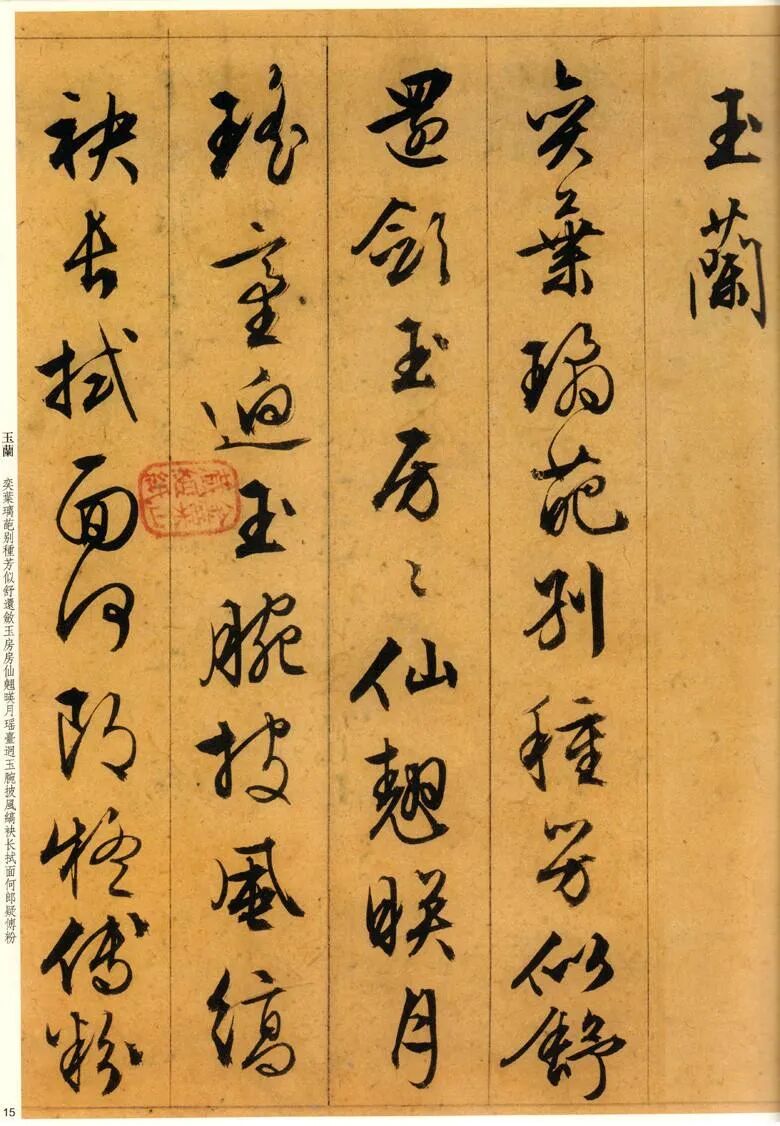 玉蘭
奕葉璚葩别種芳似舒
還斂玉房〻仙翹暎月
瑤臺逈玉腕披風縞
袂長拭面何郎疑傅粉
玉蘭 奕葉璚葩别種芳似舒還斂玉房房仙翹暎月瑶臺迥玉腕披風縞袂长拭面何郎疑傅粉
15